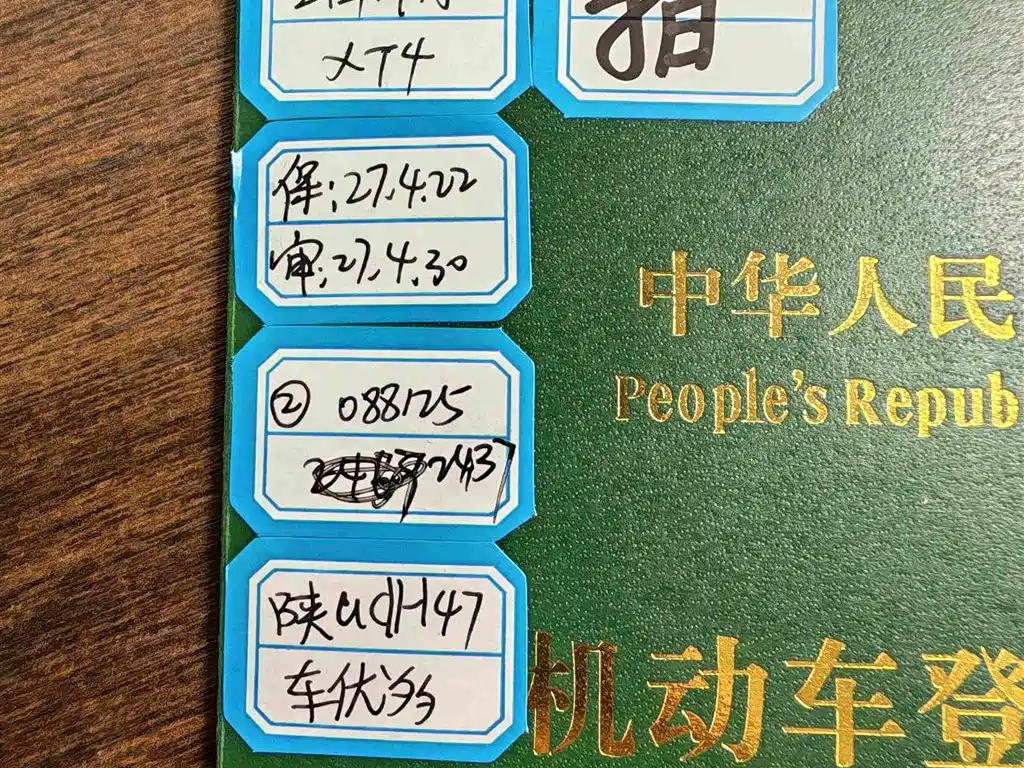 XT4
拍
保:27.4.22
审:27.4.30
② 088125
2437
陕UdH47
车优多
中华人民
People's Repub
机动车登